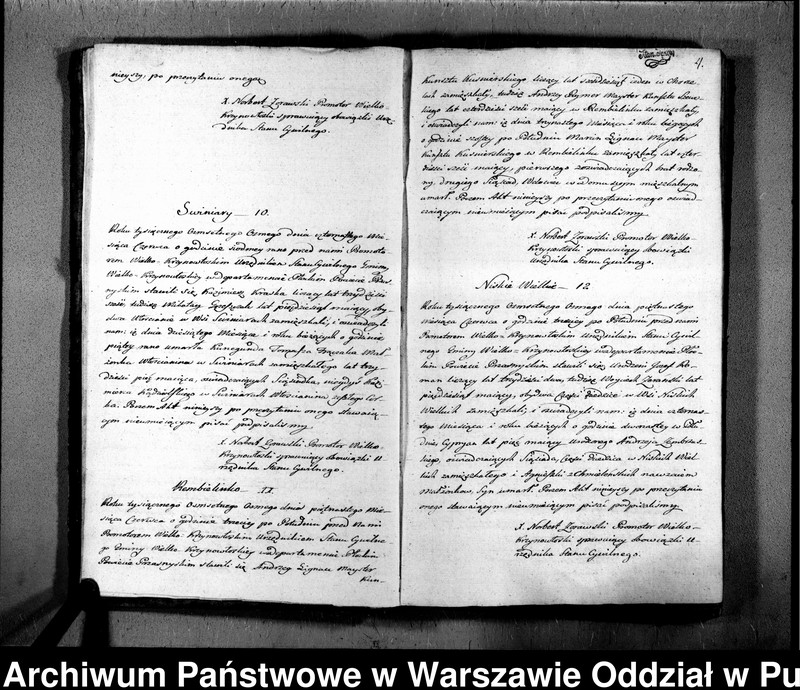 nieyszy, po przeczytaniu onegoż
X. Norbert Zorawski Promotor Wielko
Krzynowłoski sprawuiący obowiązki Urzę-
dnika Stanu Cywilnego.
Swiniary — 10.
Roku tysiącznego Osmsetnego Osmego dnia czternastego Mie-
siąca Czerwca o godzinie siodmey rano przed nami Promoto-
rem Wielko-Krzynowłoskim Urzędnikiem Stanu Cywilnego Gminy
Wielko-Krzynowłoskiey w departamencie Płockim Powiecie Prza-
snyskim stawili się Kazimierz liczący lat trzydzieści
sześć tudzież Mikołay lat pięćdziesiąt maiący, oby-
dwa Włościanie w Wsi Swiniarach zamieszkali; i oświadczyli
nam: iż dnia dziesiątego Miesiąca i roku bieżących o godzinie
piątey rano umarła Kunegunda Mał-
żonka Włościanina w Swiniarach zamieszkałego lat trzy-
dzieści pięć maiąca, oświadczaiących Sąsiadka, niegdyś
w Swiniarach Włościanina Cór-
ka. Poczem Akt ninieyszy po przeczytaniu onego stawaią-
cym nieumieiącym pisać podpisaliśmy
X. Norbert Zorawski Promotor Wielko
Krzynowłoski sprawuiący obowiązki U
rzędnika Stanu Cywilnego.
Rembielinko — 11.
Roku tysiącznego Osmsetnego Osmego dnia piętnastego Mie-
siąca Czerwca o godzinie trzeciey po Południu przed Nami
Promotorem Wielko Krzynowłoskim Urzędnikiem Stanu Cywilne-
go Gminy Wielko Krzynowłoskiey w departamencie Płockim
Powiecie Przasnyskim stawili się Andrzey Zignac Mayster
kun-
4.
kunsztu Kuśnierskiego liczący lat sześćdziesiąt ieden w Chorze-
lach zamieszkały, tudzież Andrzey Mayster Kunsztu
lat czterdzieści sześć maiący w Rembielinku zamieszkały
i oświadczyli nam: iż dnia trzynastego Miesiąca i roku bieżących
o godzinie szóstey po Południu Marcin Zignac Mayster
Kunsztu Kuśnierskiego w Rembielinku zamieszkały lat czter-
dzieści sześć maiący, pierwszego zoświadczaiących brat rodzo-
ny, drugiego Sąsiad, w domu swym mieszkalnym
umarł. Poczem Akt ninieyszy po przeczytaniu onego oświad-
czaiącym nieumieiącym pisać podpisaliśmy
X. Norbert Zorawski Promotor Wielko
Krzynowłoski sprawuiący obowiązki
Urzędnika Stanu Cywilnego.
Niskie Wielkie — 12
Roku tysiącznego Osmsetnego Osmego dnia piętnastego
miesiąca Czerwca o godzinie trzeciey po Południu przed nami
Promotorem Wielko-Krzynowłoskim Urzędnikiem Stanu Cywil-
nego Gminy Wielko-Krzynowłoskiey w departamencie Płoc-
kim Powiecie Przasnyskim stawili się Urodzeni Jozef
liczący lat trzydzieści dwa, tudzież Woyciech lat
pięćdziesiąt maiący, obydwa Części Dziedzice w Wsi Niskich
Wielkich zamieszkali; i oświadczyli nam: iż dnia czternas-
tego Miesiąca i roku bieżących o godzinie dwunastey w Połu-
dnie Cypryan lat pięć maiący Urodzonego Andrzeja
oświadczaiących Sąsiada, Części Dziedzica w Niskich Wiel-
kich zamieszkałego i Agnieszki z nawzaiem
Małżonków, Syn umarł. Poczem Akt ninieyszy po przeczytaniu
onego stawaiącym nieumieiącym pisać podpisaliśmy.
X. Norbert Zorawski Promotor Wielko-
Krzynowłoski sprawuiący obowiązki U-
rzędnika Stanu Cywilnego.
Archiwum Państwowe w Warszawie Oddział w Pu